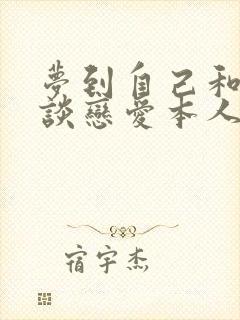 夢到自己和
談戀愛本人
宿宇杰